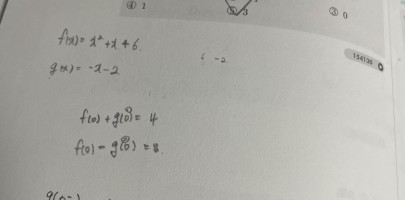 ④ 1
⑤ 3
③ 0
f(x) = x² + x + 6.
g(x) = -x-2
6 -2
154135
f(0) + g(0) = 4
f(0) - g(0) = 8.